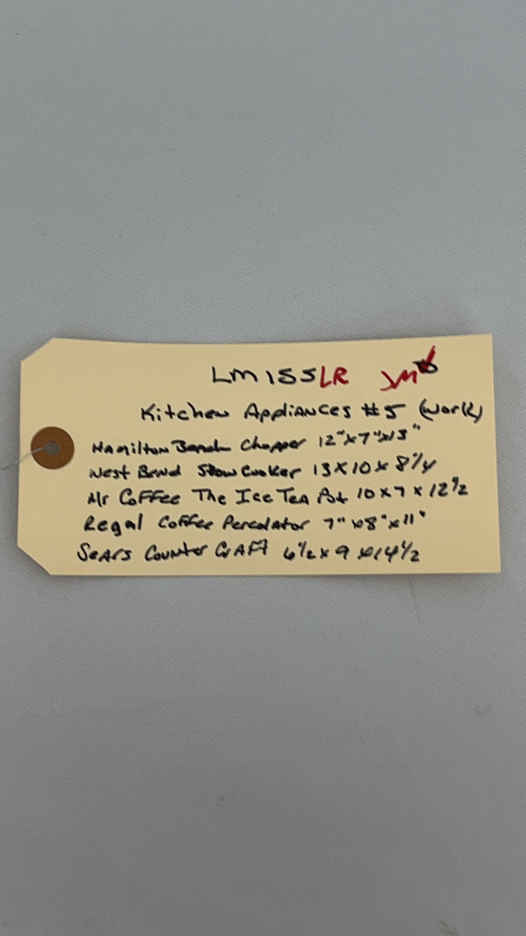 LM155LR JM
Kitchen Appliances #5 (work)
Hamilton Beach Chopper 12"x7"x13"
West Bend Slow Cooker 13x10x8¼
Mr Coffee The Ice Tea Pot 10x7x12½
Regal Coffee Percolator 7"x8"x11"
Sears Counter Craft 6½x9x14½